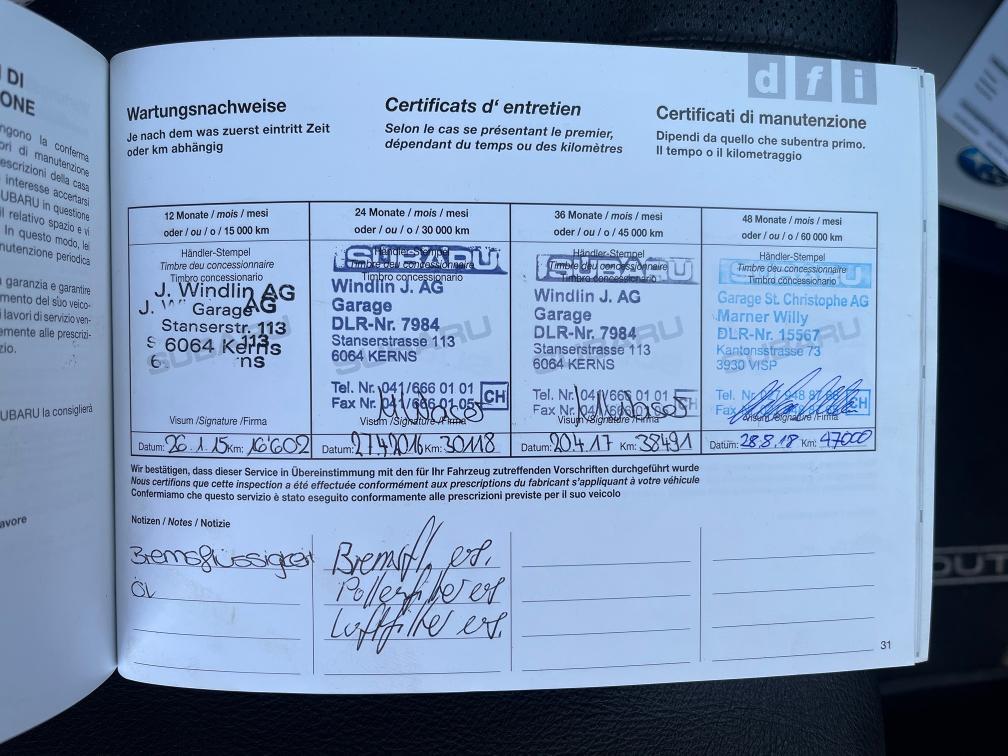 DI
ONE
ngono la conferma
ori di manutenzione
escrizioni della casa
interesse accertarsi
UBARU in questione
il relativo spazio e vi
In questo modo, lei
nutenzione periodica
garanzia e garantire
mento del suo veico-
i lavori di servizio ven-
emente alle prescri-
zio.
UBARU la consiglierà
avore
d f i
Wartungsnachweise
Je nach dem was zuerst eintritt Zeit
oder km abhängig
Certificats d' entretien
Selon le cas se présentant le premier,
dépendant du temps ou des kilomètres
Certificati di manutenzione
Dipendi da quello che subentra primo.
Il tempo o il kilometraggio
12 Monate / mois / mesi
oder / ou / o / 15 000 km
Händler-Stempel
Timbre deu concessionnaire
Timbro concessionario
J. Windlin AG
Garage
Stanserstr. 113
6064 Kerns
SUBARU
Visum /Signature /Firma
Datum: 26.1.15 Km: 16'602
24 Monate / mois / mesi
oder / ou / o / 30 000 km
SUBARU
Händler-Stempel
Timbre deu concessionnaire
Timbro concessionario
Windlin J. AG
Garage
DLR-Nr. 7984
Stanserstrasse 113
6064 KERNS
SUBARU
Tel. Nr. 041/666 01 01
Fax Nr. 041/666 01 05
CH
Visum /Signature /Firma
Datum: 27.4.2016 Km: 30118
36 Monate / mois / mesi
oder / ou / o / 45 000 km
SUBARU
Händler-Stempel
Timbre deu concessionnaire
Timbro concessionario
Windlin J. AG
Garage
DLR-Nr. 7984
Stanserstrasse 113
6064 KERNS
SUBARU
Tel. Nr. 041/666 01 01
Fax Nr. 041/666 01 05
CH
Visum /Signature /Firma
Datum: 20.4.17 Km: 38491
48 Monate / mois / mesi
oder / ou / o / 60 000 km
SUBARU
Händler-Stempel
Timbre deu concessionnaire
Timbro concessionario
Garage St. Christophe AG
Marner Willy
DLR-Nr. 15567
Kantonsstrasse 73
3930 VISP
SUBARU
Tel. Nr.
Fax Nr.
CH
Visum /Signature /Firma
Datum: 28.8.18 Km: 47000
Wir bestätigen, dass dieser Service in Übereinstimmung mit den für Ihr Fahrzeug zutreffenden Vorschriften durchgeführt wurde
Nous certifions que cette inspection a été effectuée conformément aux prescriptions du fabricant s'appliquant à votre véhicule
Confermiamo che questo servizio è stato eseguito conformamente alle prescrizioni previste per il suo veicolo
Notizen / Notes / Notizie
Bremsflüssigkeit
ÖL
Bremsfl. ers.
Pollenfilter ers
Luftfilter ers.
31
OUT